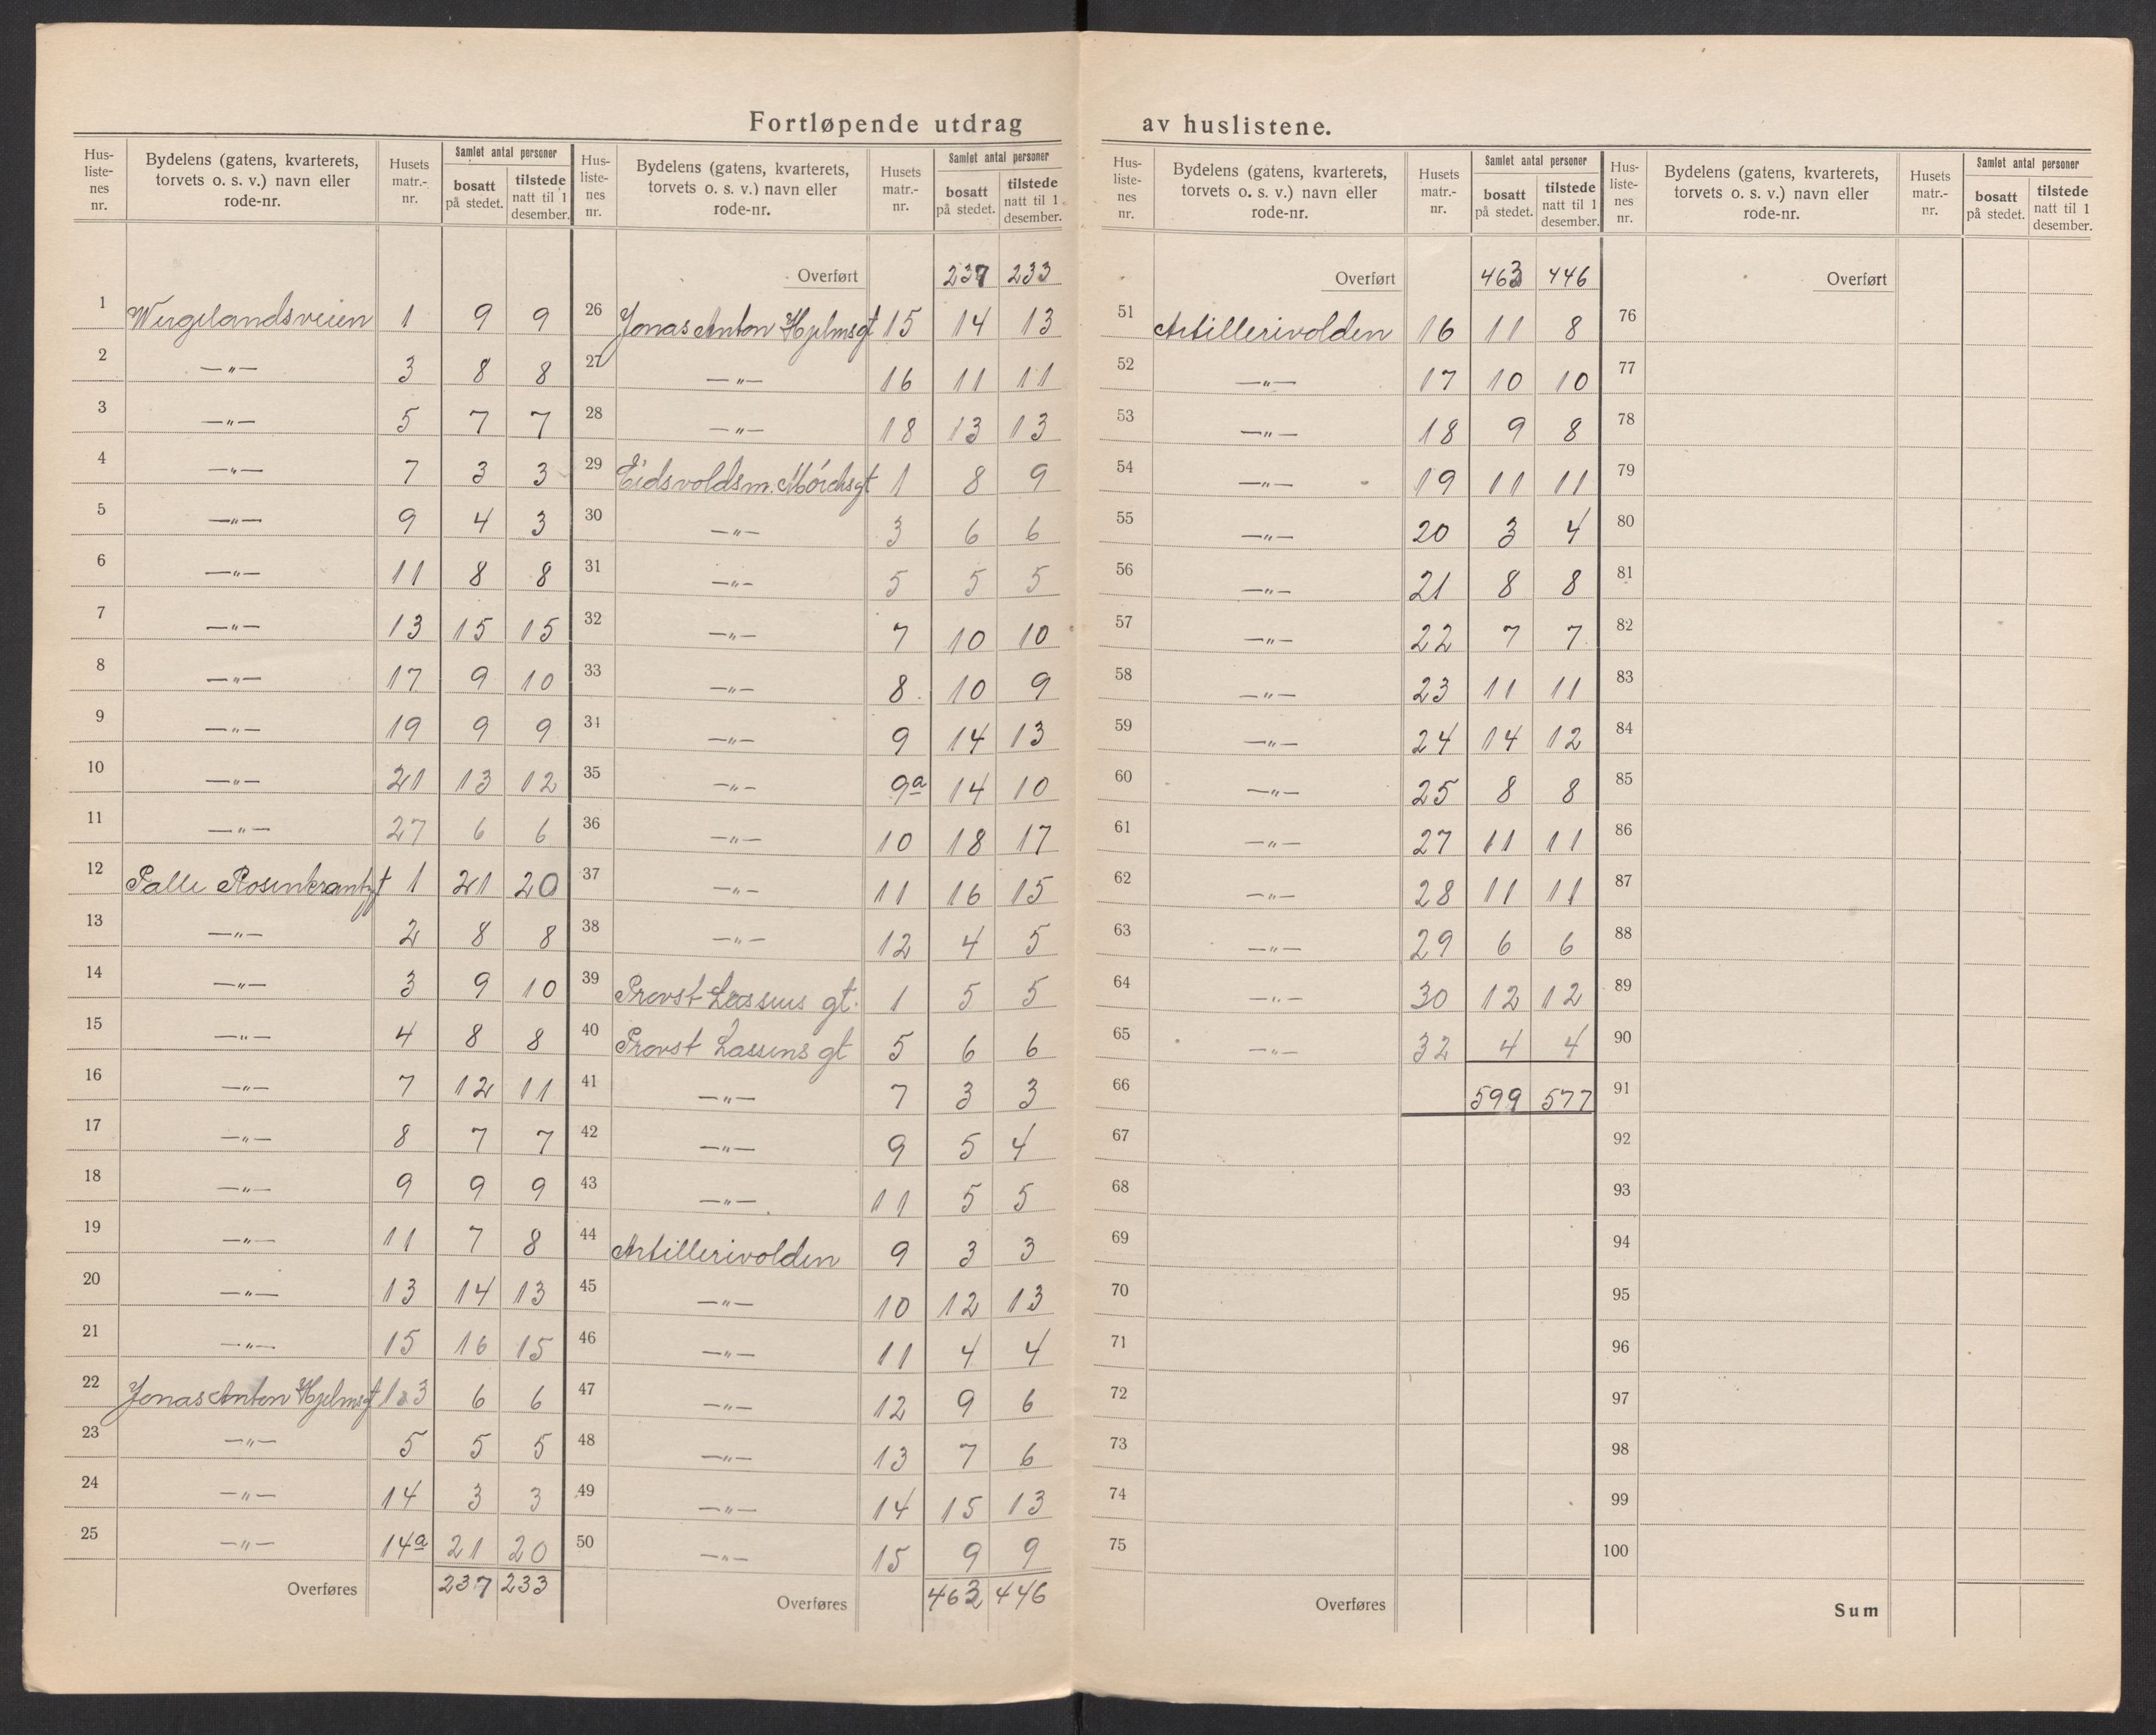 Fortløpende utdrag av huslistene.
Hus-liste-nes nr. | Bydelens (gatens, kvarterets, torvets o. s. v.) navn eller rode-nr. | Husets matr.-nr. | Samlet antal personer | bosatt på stedet. | tilstede natt til 1 desember.
1 Wergelandsveien 1 9 9
2 —„— 3 8 8
3 —„— 5 7 7
4 —„— 7 3 3
5 —„— 9 4 3
6 —„— 11 8 8
7 —„— 13 15 15
8 —„— 17 9 10
9 —„— 19 9 9
10 —„— 21 13 12
11 —„— 27 6 6
12 Palle Rosenkrantzgt 1 21 20
13 —„— 2 8 8
14 —„— 3 9 10
15 —„— 4 8 8
16 —„— 7 12 11
17 —„— 8 7 7
18 —„— 9 9 9
19 —„— 11 7 8
20 —„— 13 14 13
21 —„— 15 16 15
22 Jonas Anton Hjelmsgt 1a3 6 6
23 —„— 5 5 5
24 —„— 14 3 3
25 —„— 14a 21 20
Overføres 237 233
Hus-liste-nes nr. | Bydelens (gatens, kvarterets, torvets o. s. v.) navn eller rode-nr. | Husets matr.-nr. | Samlet antal personer | bosatt på stedet. | tilstede natt til 1 desember.
Overført 237 233
26 Jonas Anton Hjelmsgt 15 14 13
27 —„— 16 11 11
28 —„— 18 13 13
29 Eidsvoldsm. Mórchsgt 1 8 9
30 —„— 3 6 6
31 —„— 5 5 5
32 —„— 7 10 10
33 —„— 8 10 9
34 —„— 9 14 13
35 —„— 9a 14 10
36 —„— 10 18 17
37 —„— 11 16 15
38 —„— 12 4 5
39 Provst Lassens gt. 1 5 5
40 Provst Lassens gt 5 6 6
41 —„— 7 3 3
42 —„— 9 5 4
43 —„— 11 5 5
44 Artillerivolden 9 3 3
45 —„— 10 12 13
46 —„— 11 4 4
47 —„— 12 9 6
48 —„— 13 7 6
49 —„— 14 15 13
50 —„— 15 9 9
Overføres 463 446
Hus-liste-nes nr. | Bydelens (gatens, kvarterets, torvets o. s. v.) navn eller rode-nr. | Husets matr.-nr. | Samlet antal personer | bosatt på stedet. | tilstede natt til 1 desember.
Overført 463 446
51 Artillerivolden 16 11 8
52 —„— 17 10 10
53 —„— 18 9 8
54 —„— 19 11 11
55 —„— 20 3 4
56 —„— 21 8 8
57 —„— 22 7 7
58 —„— 23 11 11
59 —„— 24 14 12
60 —„— 25 8 8
61 —„— 27 11 11
62 —„— 28 11 11
63 —„— 29 6 6
64 —„— 30 12 12
65 —„— 32 4 4
66 599 577
67
68
69
70
71
72
73
74
75
Overføres
Hus-liste-nes nr. | Bydelens (gatens, kvarterets, torvets o. s. v.) navn eller rode-nr. | Husets matr.-nr. | Samlet antal personer | bosatt på stedet. | tilstede natt til 1 desember.
Overført
76
77
78
79
80
81
82
83
84
85
86
87
88
89
90
91
92
93
94
95
96
97
98
99
100
Sum